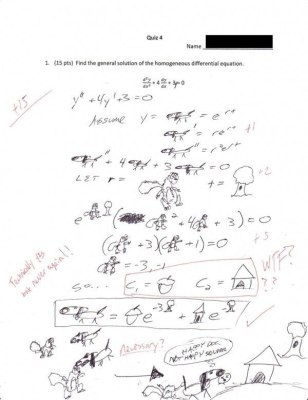 Quiz 4
Name
1. (15 pts) Find the general solution of the homogeneous differential equation.
d²y/dx² + 4 dy/dx + 3y = 0
+15
y'' + 4y' + 3 = 0
Assume y = = e^rt
' = re^rt
+1
'' = r²e^rt
'' + 4 ' + 3 = 0
Let r = t =
+2
e ( ² + 4 + 3) = 0
( + 3)( + 1) = 0
+5
= -3, -1
So... C₁ = C₂ =
WTF?
??
Technically
never again!!
= e^-3 + e^-
Necessary?
Happy Dog,
Not Happy Squirrel